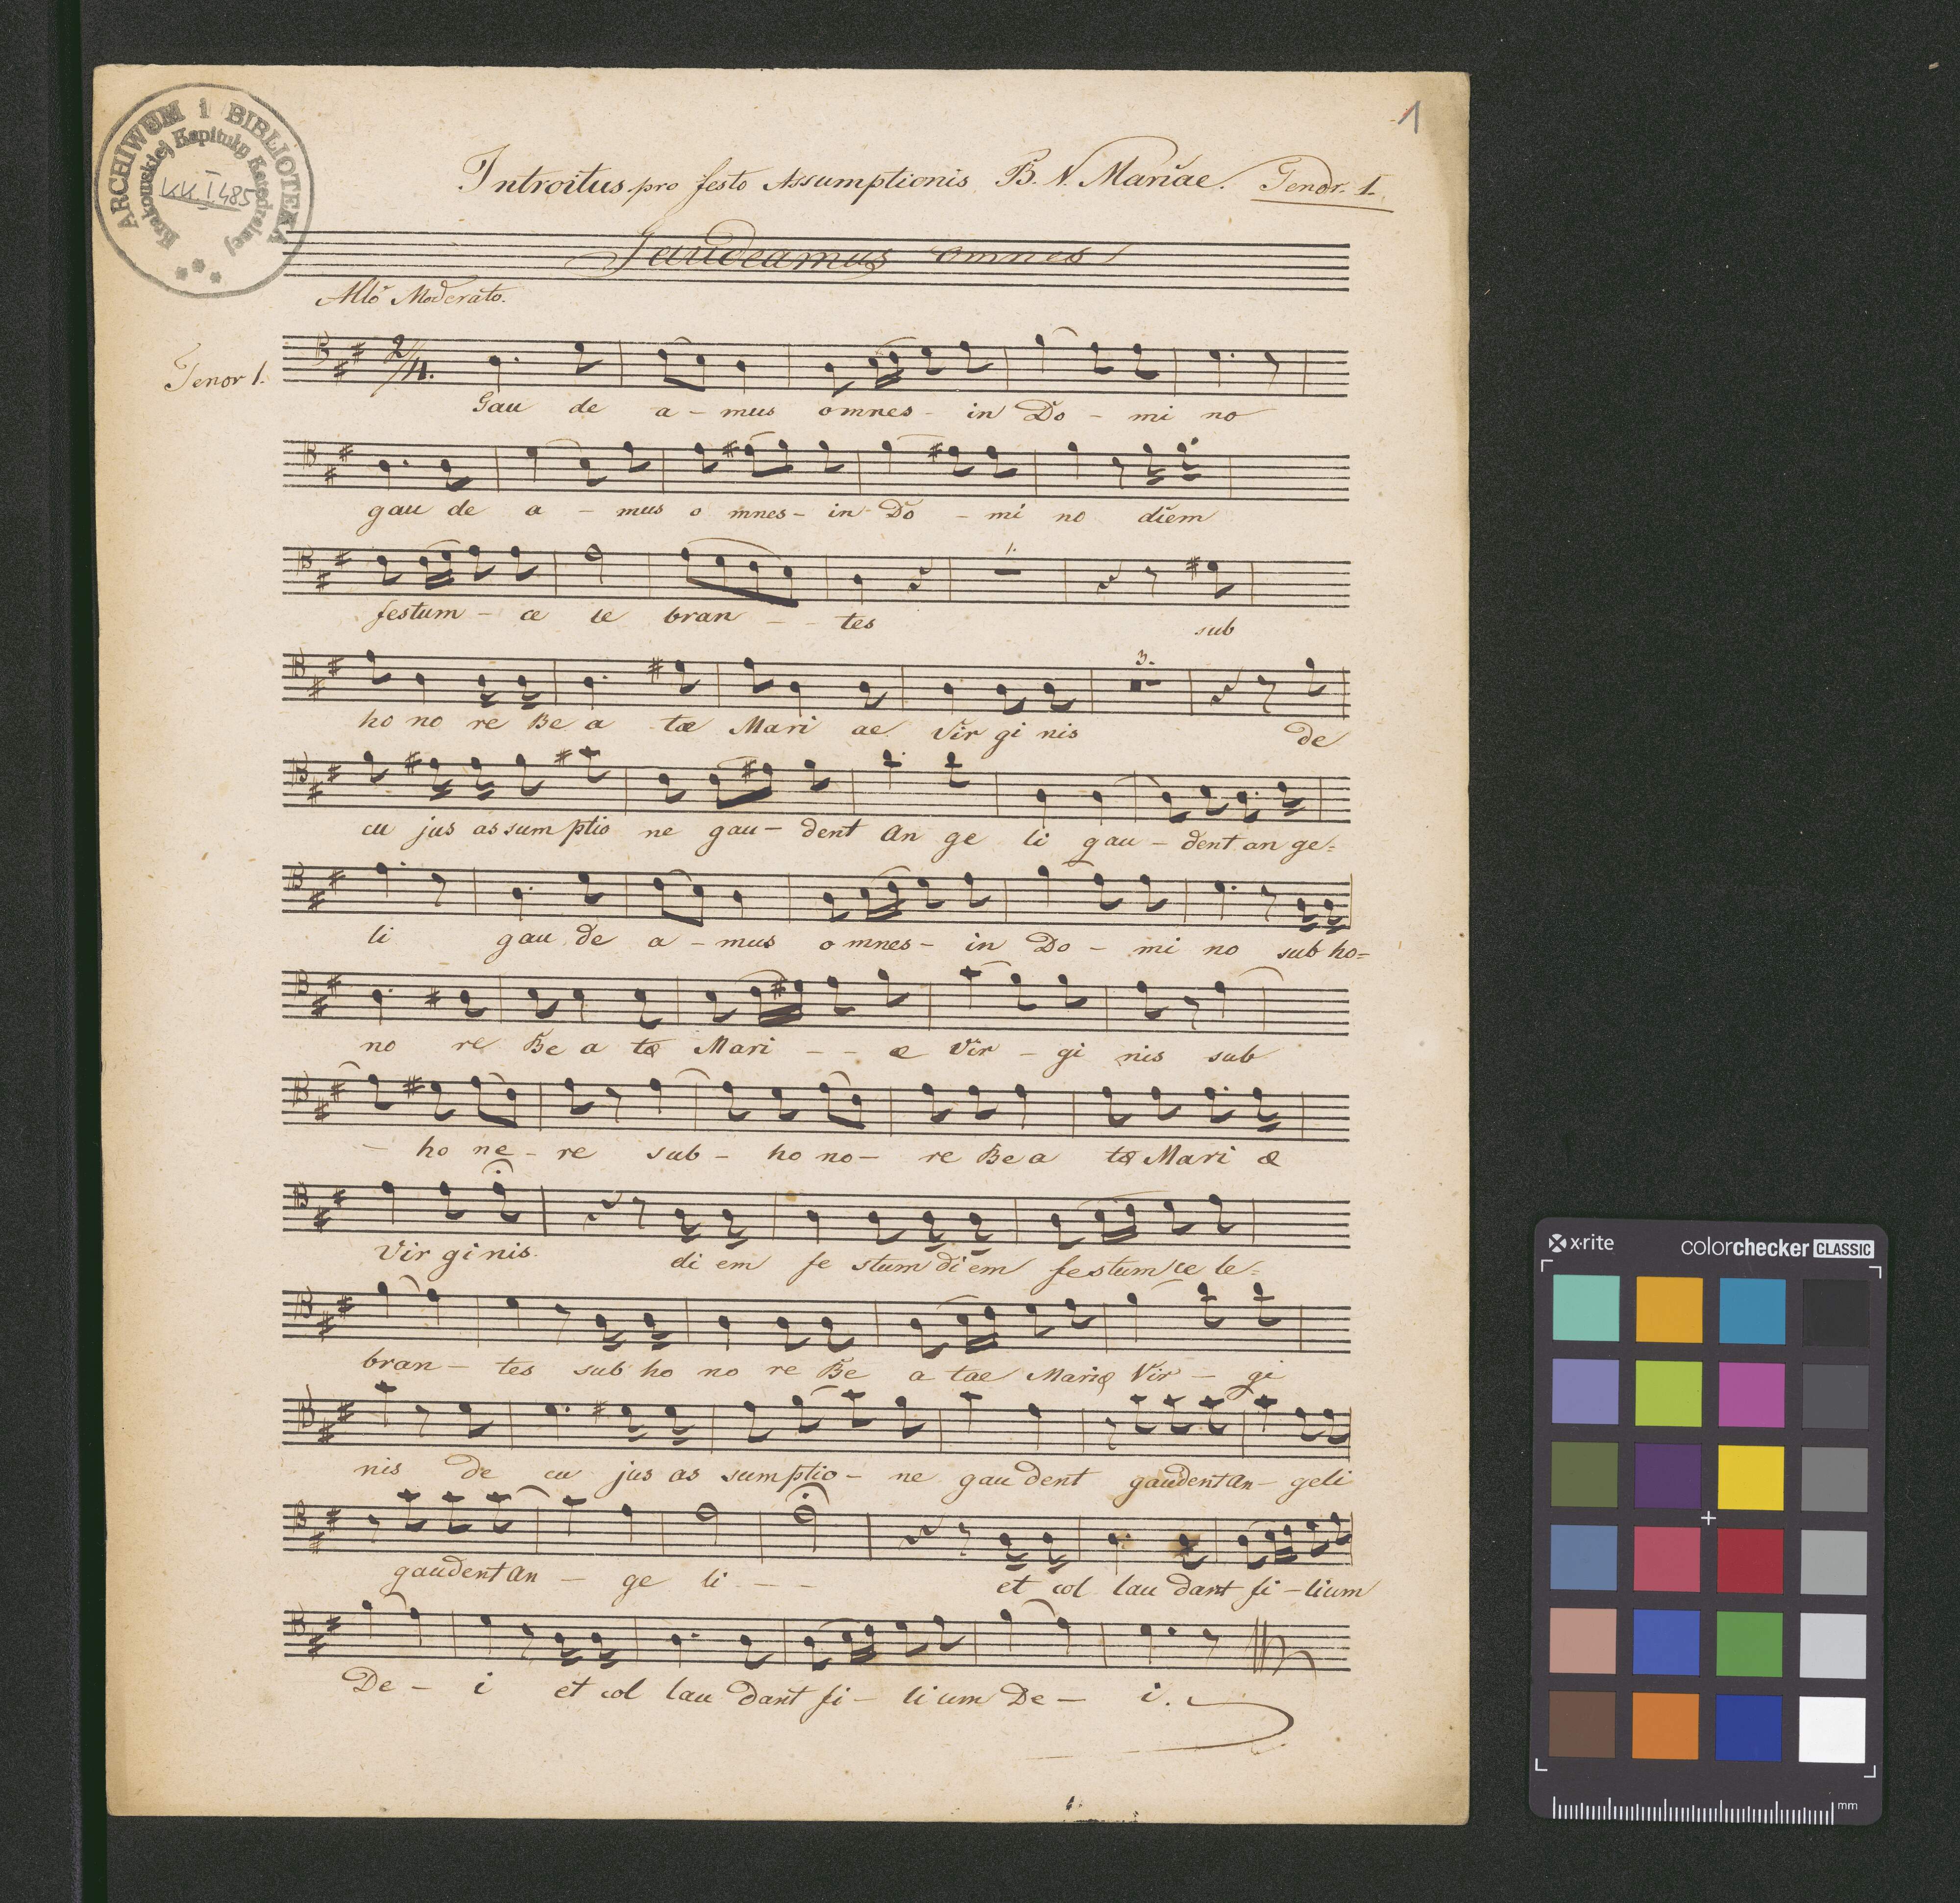 1
ARCHIWUM i BIBLIOTEKA
Krakowskiej Kapituły Katedralnej
KK. I. 485
Introitus pro festo Assumptionis B. V. Mariae. Tenor. 1.
Gaudeamus omnes
Allo Moderato.
Tenor 1.
2/4.
Gau de a - mus omnes - in Do - mi no
gau de a - mus o mnes - in - Do - mi no diem
1.
festum - ce le bran - - tes sub
3.
ho no re Be a tæ Mari ae Vir gi nis de
cu jus as sum ptio ne gau - dent An ge li gau - dent an ge=
li gau de a - mus o mnes - in Do - mi no sub ho=
no re Be a tæ Mari - - æ Vir - gi nis sub
- ho ne - re sub - ho no - re Be a tæ Mari æ
Vir gi nis. di em fe stum di em festum ce le=
bran - tes sub ho no re Be a tae Mariæ Vir - gi
nis de cu jus as sumptio - ne gau dent gaudent An - geli
gaudent An - ge li - - et col lau dant fi - lium
De - i et col lau dant fi - li um De - i.
x·rite
colorchecker CLASSIC
mm